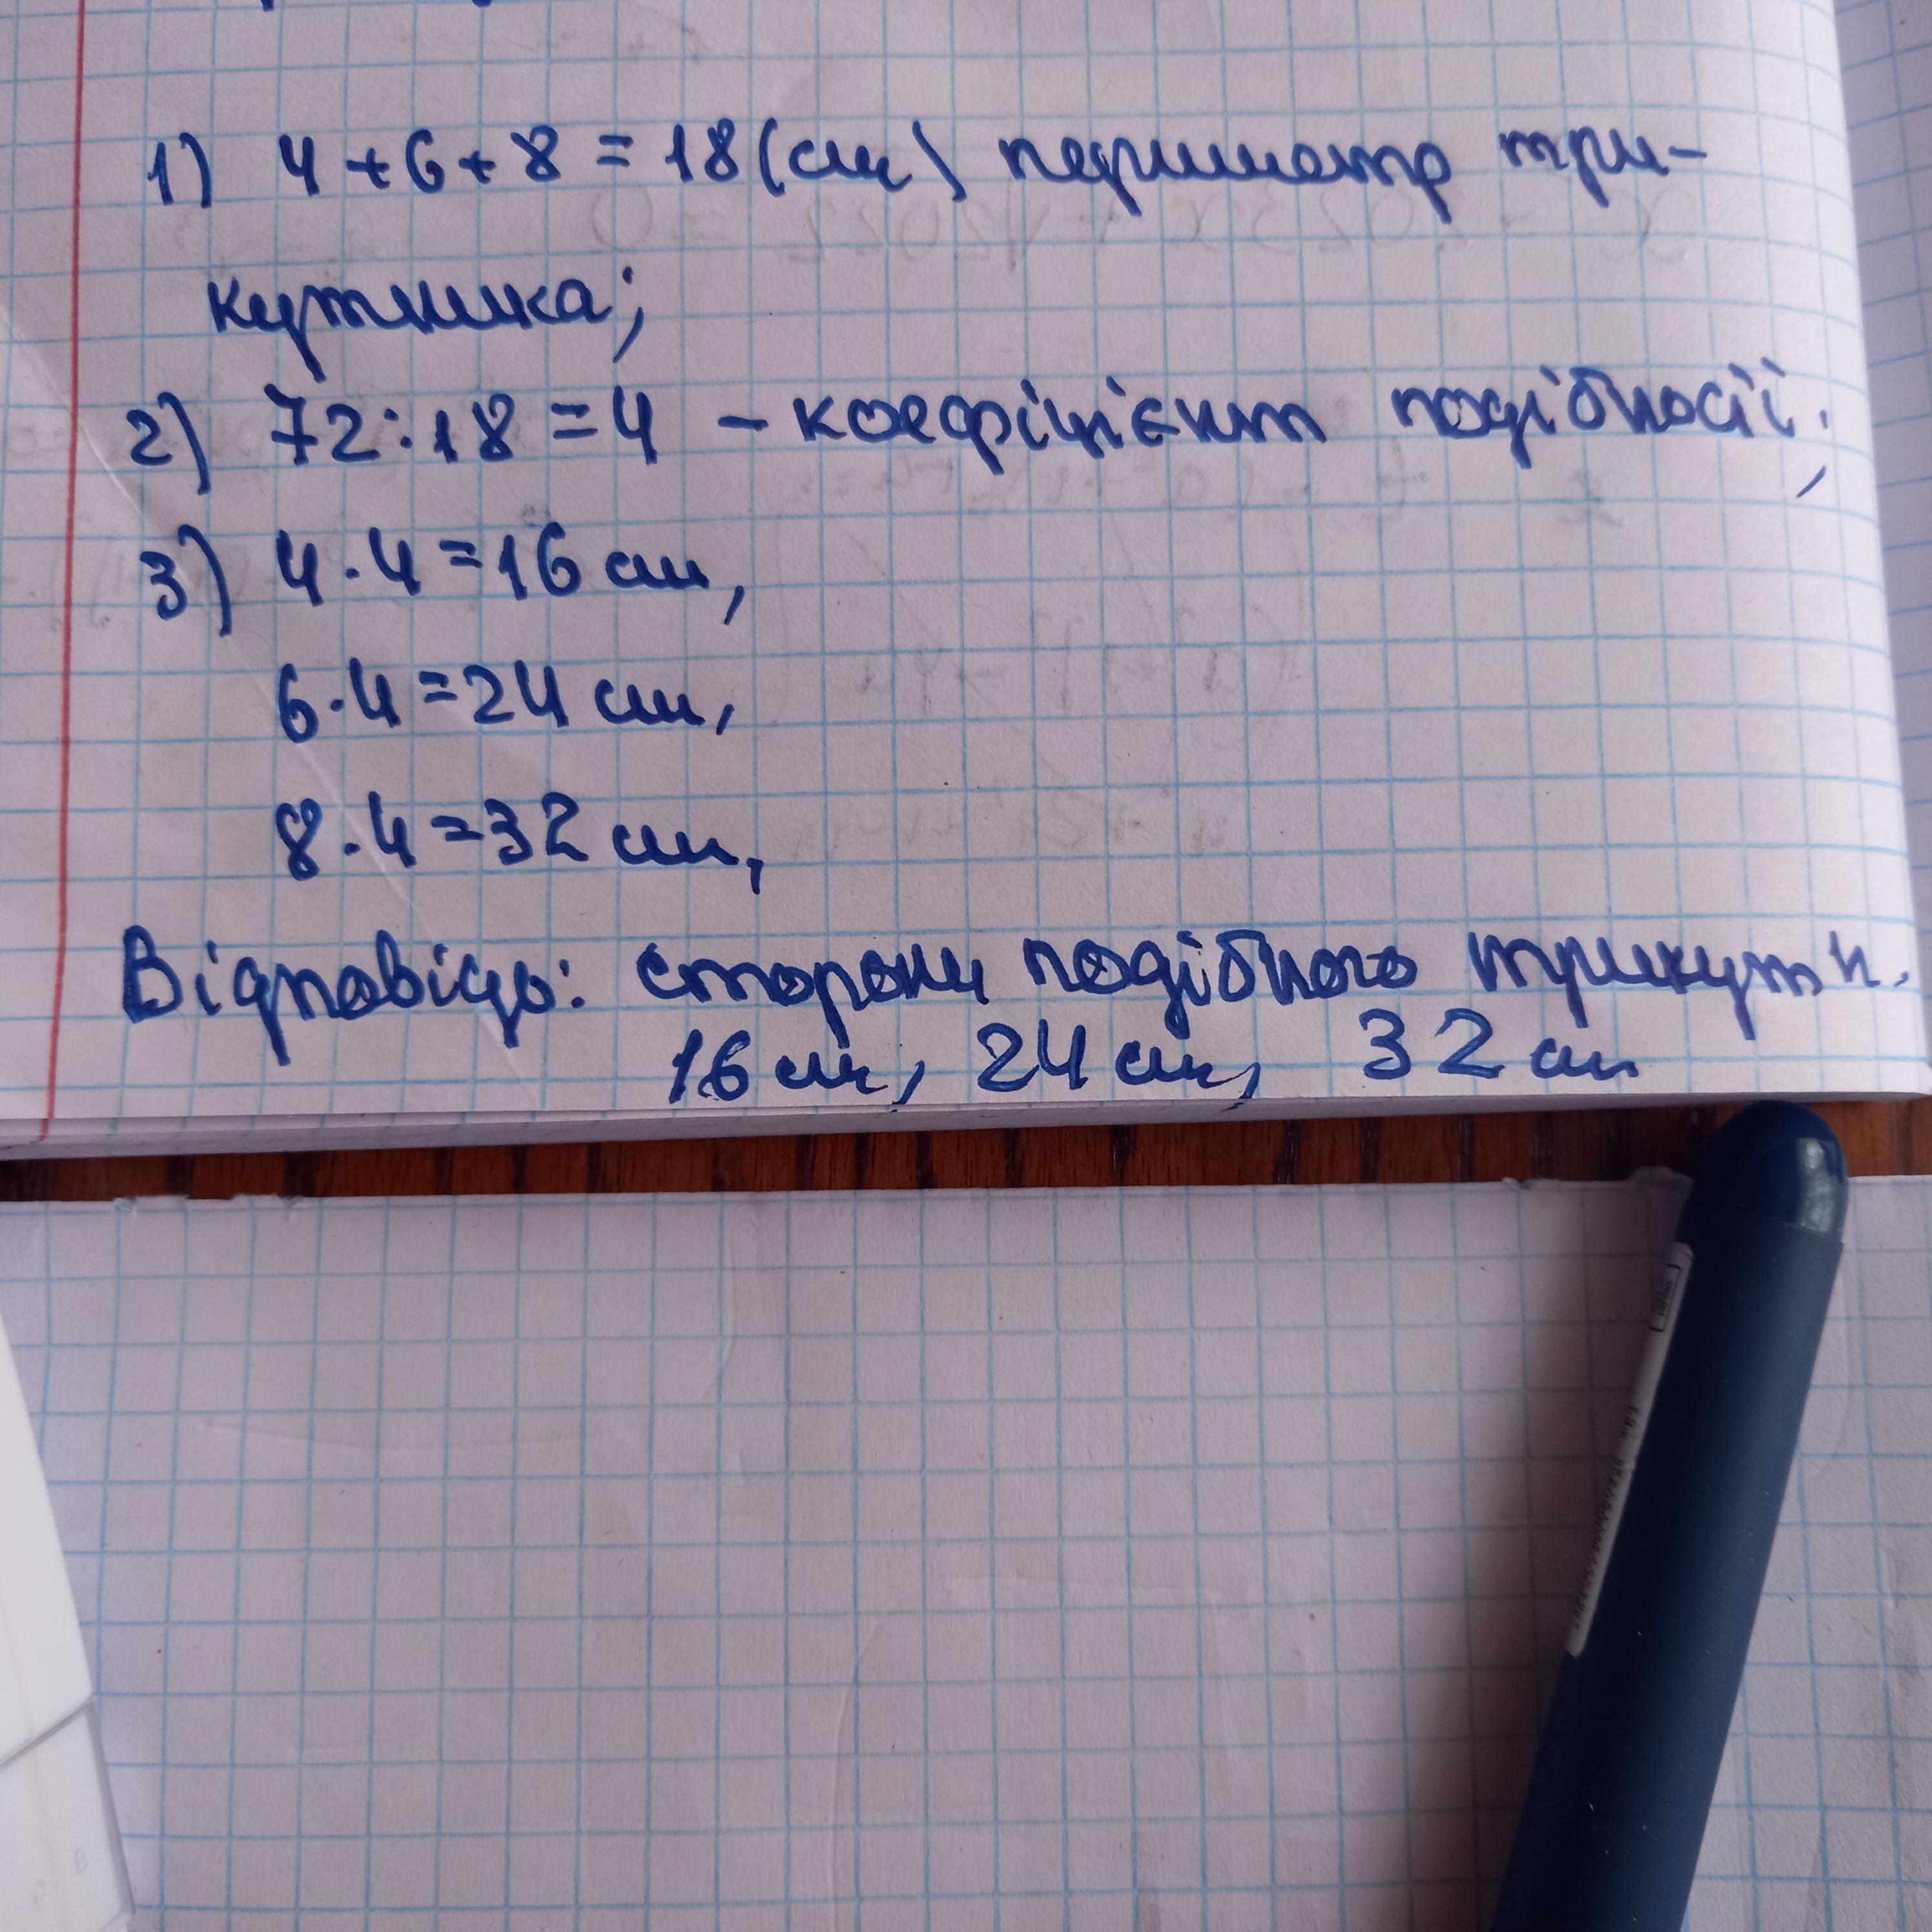 1) 4 + 6 + 8 = 18 (см) периметр три-
кутника;
2) 72 : 18 = 4 – коефіцієнт подібності;
3) 4 · 4 = 16 см,
6 · 4 = 24 см,
8 · 4 = 32 см,
Відповідь: сторони подібного трикутн.
16 см, 24 см, 32 см